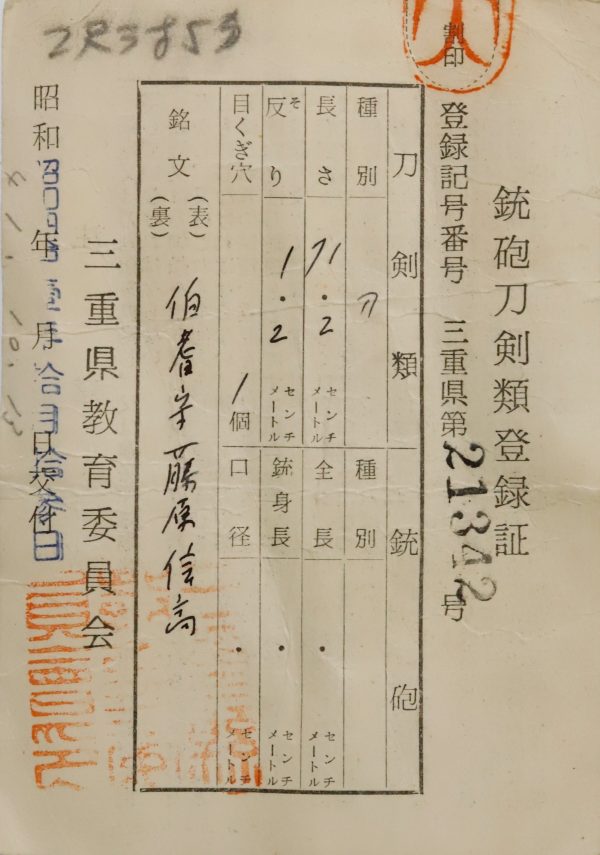 銃砲刀剣類登録証
割印
登録記号番号 三重県第21342号
刀剣類 銃砲
種別 刀 種別
長さ 71.2 センチメートル 全長 ・ センチメートル
反り そ 1.2 センチメートル 銃身長 ・ センチメートル
目くぎ穴 1個 口径 ・ センチメートル
銘文 (表) 伯耆守藤原信高
(裏)
三重県教育委員会
昭和 年 月 日交付
41.10.13
2尺3寸5分